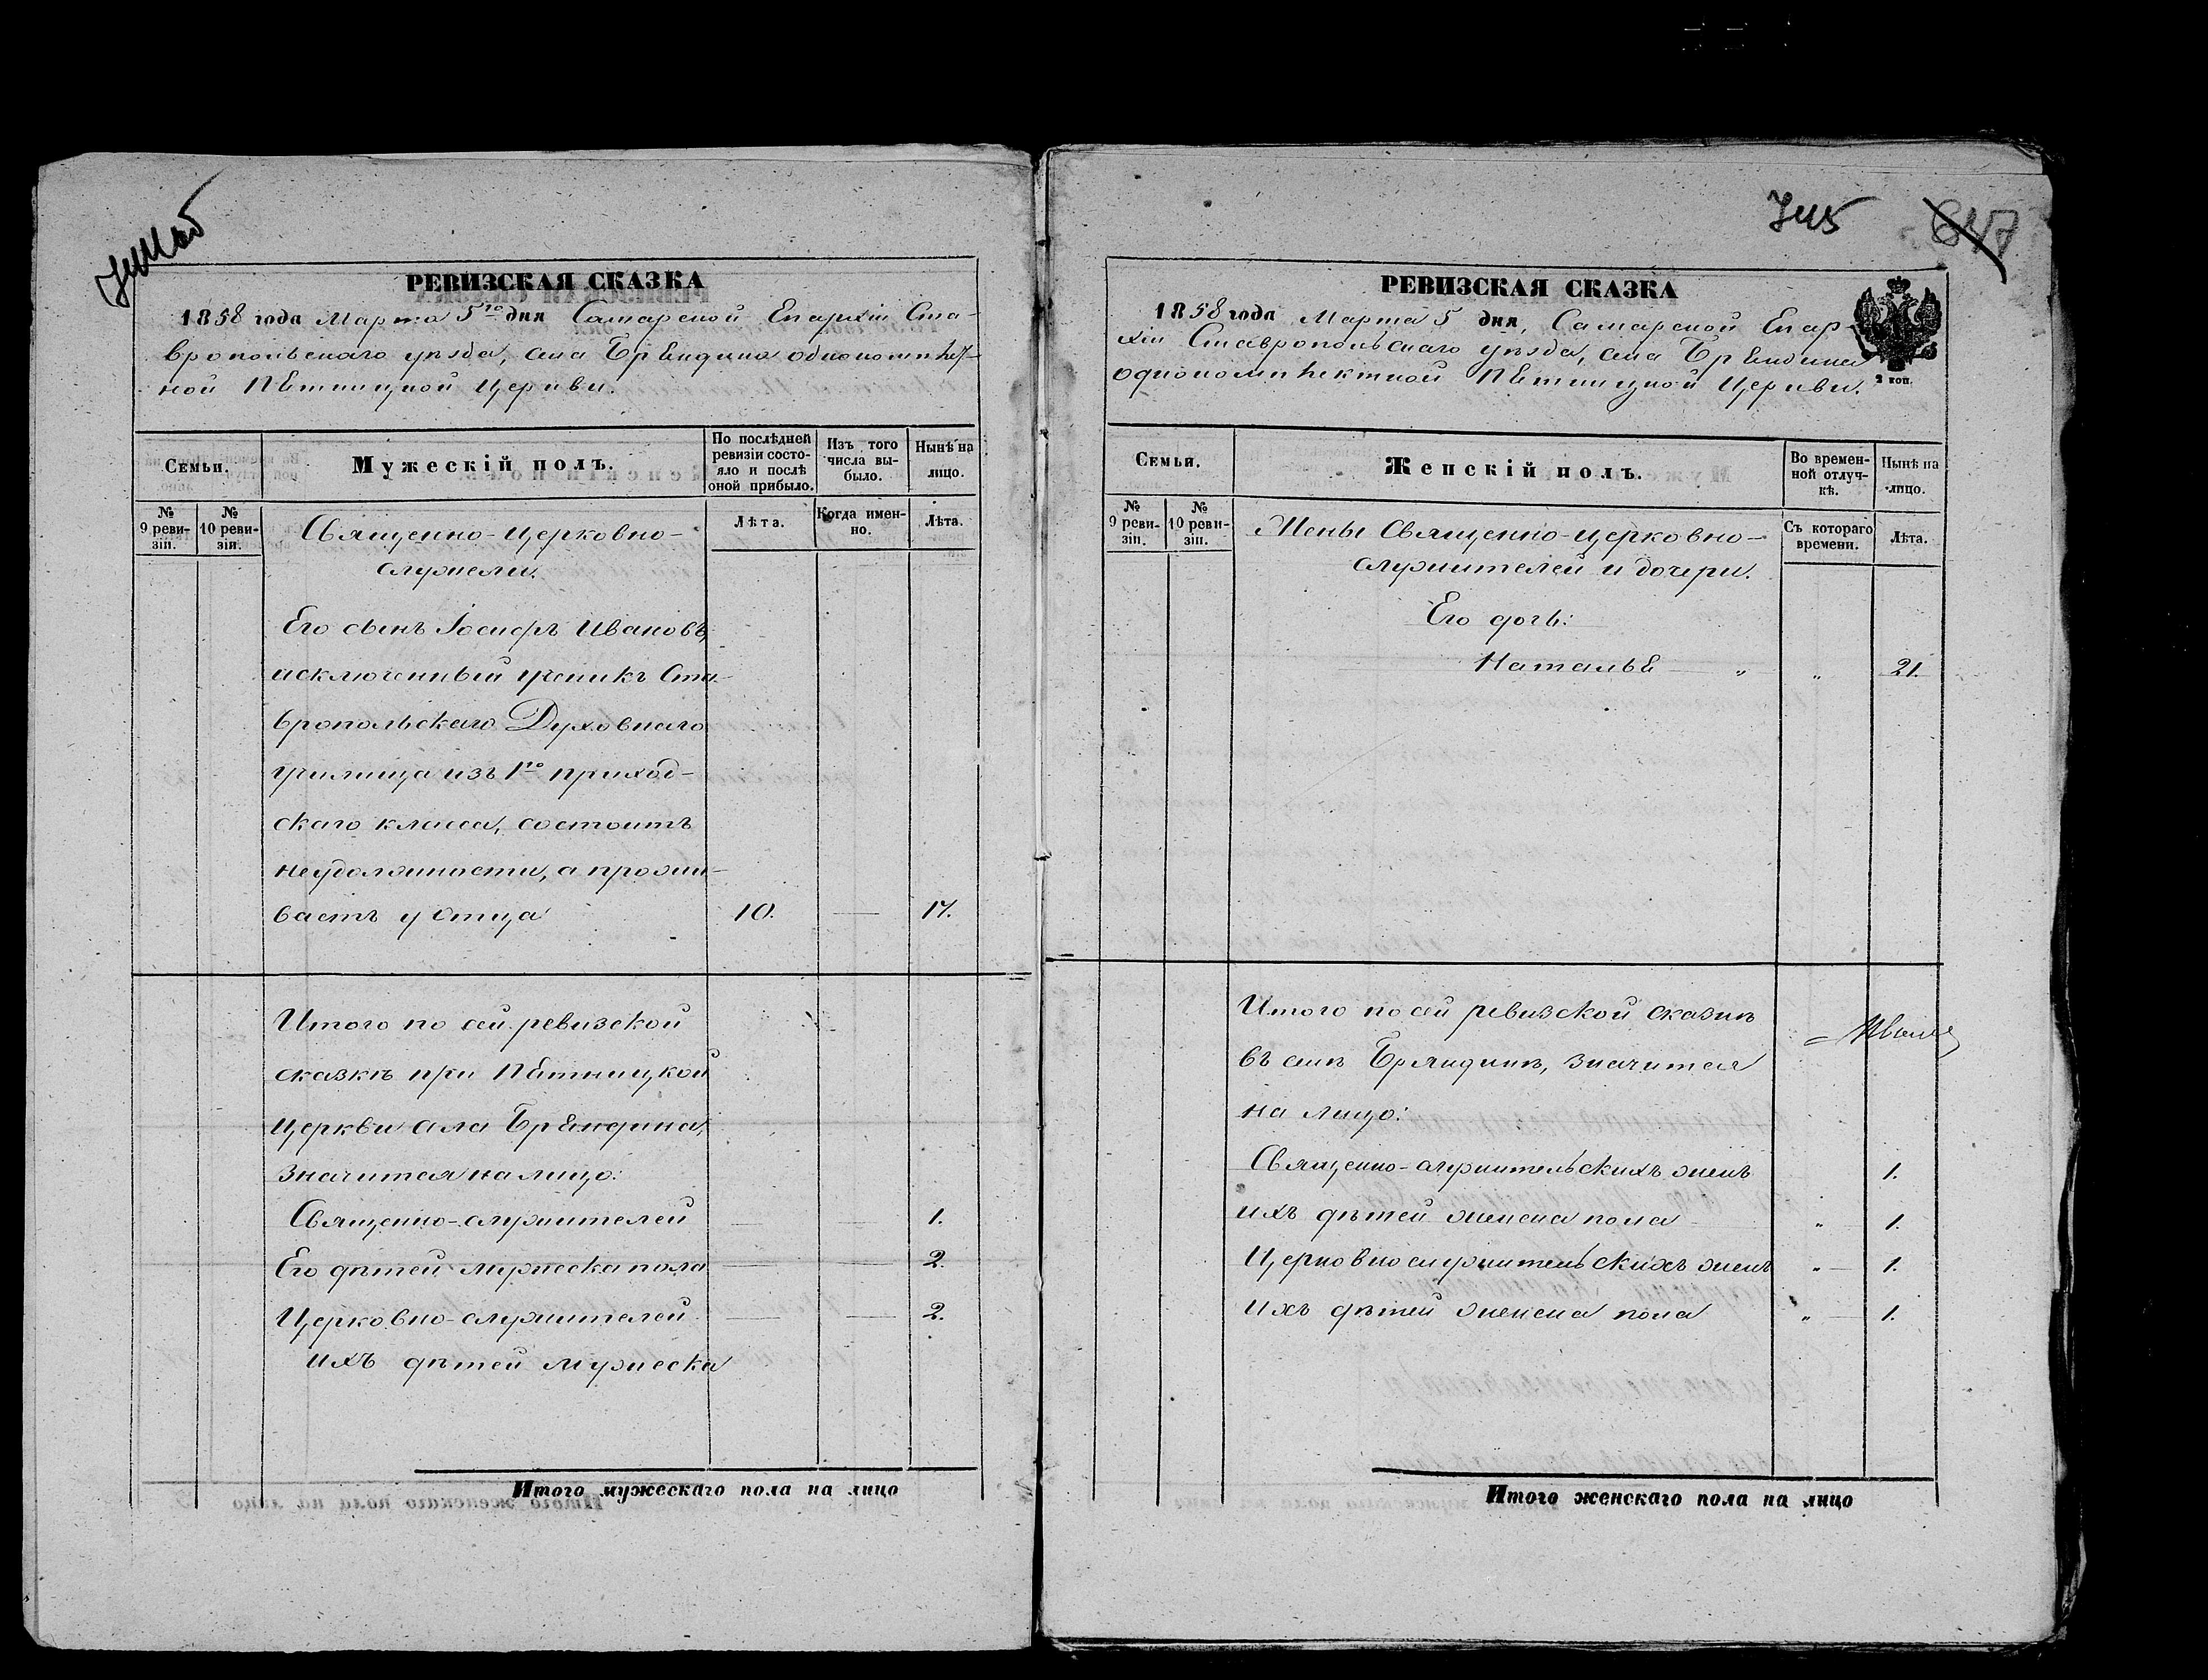 РЕВИЗСКАЯ СКАЗКА
1858 года Марта 5го дня Самарской Епархіи Ста-
вропольскаго уѣзда, села Брендина однокомплект-
ной Пятницкой Церкви.
Семьи.
Мужескій полъ.
По послѣдней ревизіи состояло и послѣ оной прибыло.
Изъ того числа выбыло.
Нынѣ на лицо.
№ 9 ревизіи.
№ 10 ревизіи.
Лѣта.
Когда именно.
Лѣта.
Священно-церковно-
служели.
Его сынъ Іосифъ Ивановъ,
исключенный ученикъ Ста-
вропольскаго Духовнаго
училища изъ 1го приход-
скаго класса, состоитъ
не у должности, а прожи-
ваетъ у отца 10. — 17.
Итого по сей ревизской
сказкѣ при Пятницкой
церкви села Брендина,
значится на лицо:
Священно-служителей — — 1.
Его дѣтей мужеска пола — — 2.
Церковно-служителей — — 2.
ихъ дѣтей мужеска
Итого мужескаго пола на лицо
745
847
РЕВИЗСКАЯ СКАЗКА
1858 года Марта 5 дня, Самарской Епар-
хіи Ставропольскаго уѣзда, села Брендина
однокомплектной Пятницкой Церкви.
2 коп.
Семьи.
Женскій полъ.
Во временной отлучкѣ.
Нынѣ на лицо.
№ 9 ревизіи.
№ 10 ревизіи.
Съ котораго времени.
Лѣта.
Жены Священно-церковно-
служителей и дочери.
Его дочь:
Наталья „ „ 21.
Итого по сей ревизской сказкѣ
въ селѣ Бряндинѣ, значится
на лицо:
Священно-служительскихъ женъ 1.
ихъ дѣтей женска пола „ 1.
Церковнослужительскихъ женъ „ — 1.
ихъ дѣтей женска пола „ — 1.
Итого женскаго пола на лицо